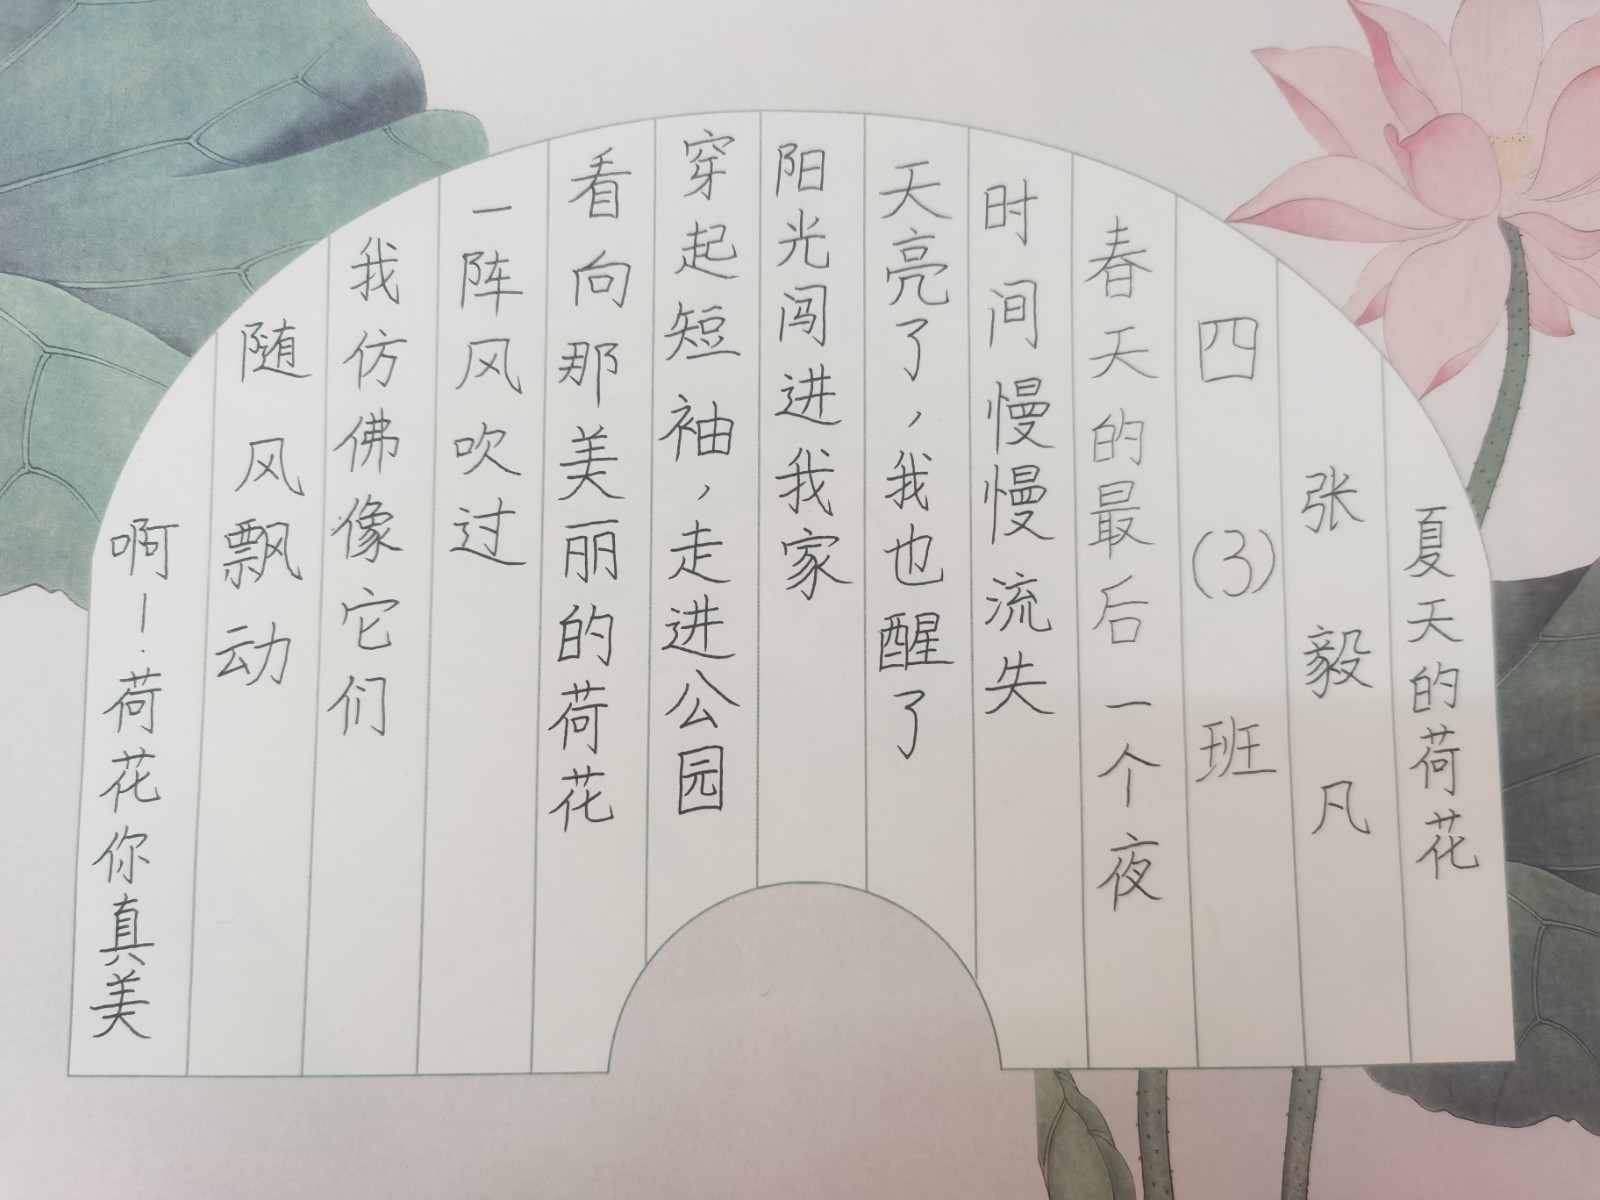 夏天的荷花
张毅凡
四(3)班
春天的最后一个夜
时间慢慢流失
天亮了,我也醒了
阳光闯进我家
穿起短袖,走进公园
看向那美丽的荷花
一阵风吹过
我仿佛像它们
随风飘动
啊!荷花你真美